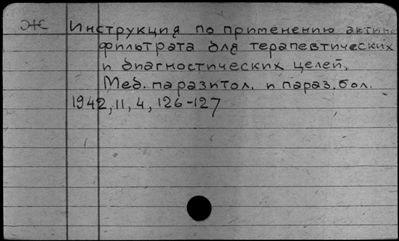 Ж
Инструкция по применению актино
фильтрата для терапевтических
и диагностических целей.
Мед. паразитол. и параз. бол.
1942, 11, 4, 126-127